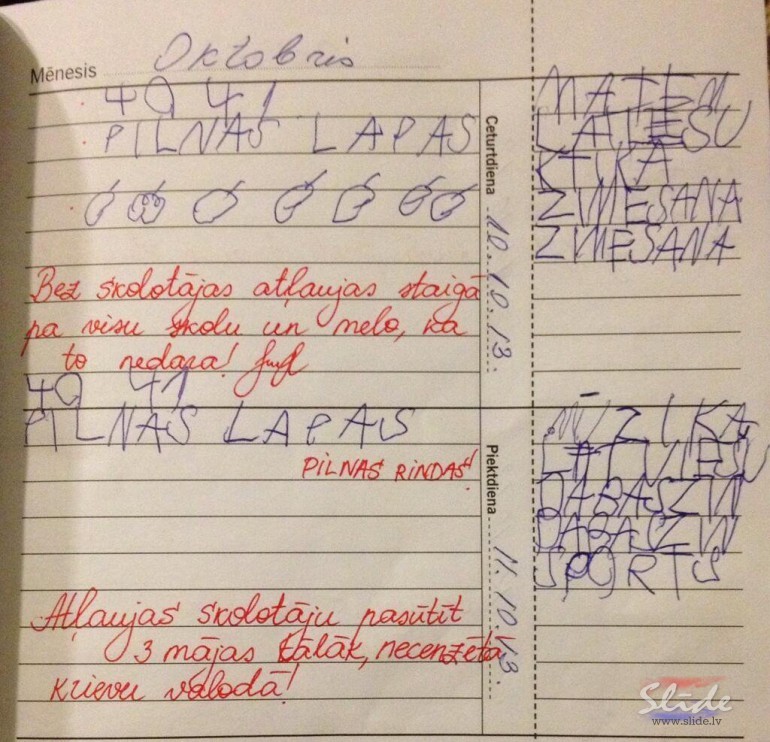 Mēnesis Oktobris
40 41
PILNAS LAPAS
Ceturtdiena 10.10.13.
MATEM
LATIEŠU
KTIKA
ZMEŠANA
ZMEŠANA
Bez skolotājas atļaujas staigā
pa visu skolu un melo, ka
to nedara!
40 41
PILNAS LAPAS
PILNAS RINDAS!
Piektdiena 11.10.13
MŪZIKA
LATVIEŠU
DABASZIN
DABASZIN
SPORTS
Atļaujas skolotāju pasūtīt
3 mājas tālāk, necenzētā
krievu valodā!
Slide
www.slide.lv